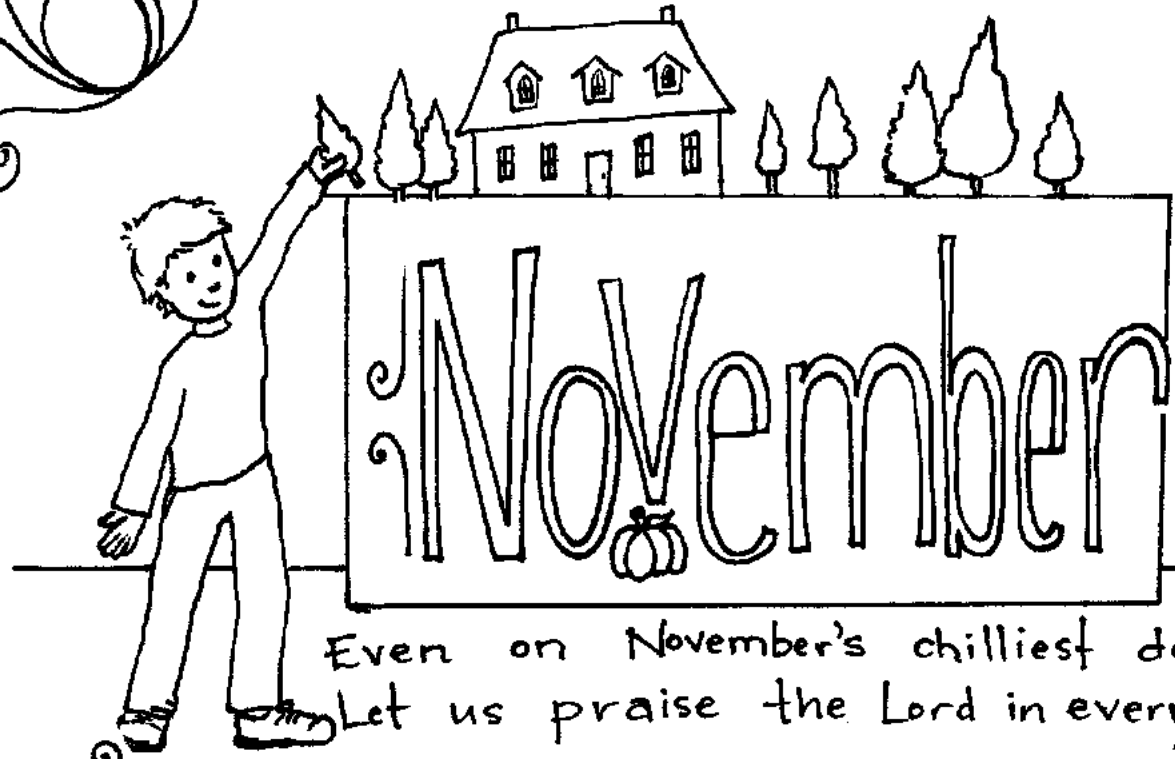 November
Even on November's chilliest
Let us praise the Lord in